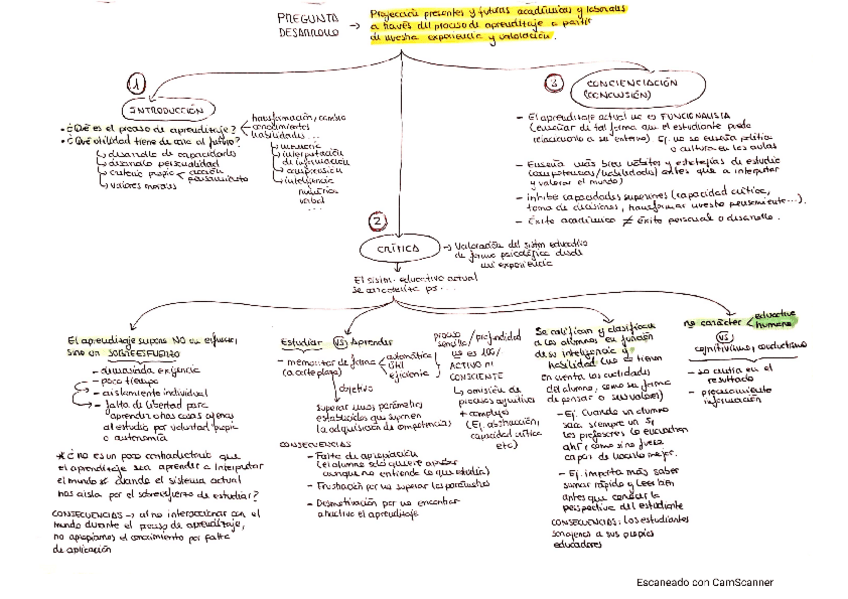 PREGUNTA
DESARROLLO
Proyección presentes y futuras académicas y laborales
a través del proceso de aprendizaje a partir
de nuestra experiencia y valoración.
1
INTRODUCCIÓN
- ¿Qué es el proceso de aprendizaje?
transformación, cambio
conocimientos
habilidades...
memoria
interpretación
de información
comprensión
inteligencia
numérica
verbal
...
- ¿Qué utilidad tiene de cara al futuro?
desarrollo de capacidades
desarrollo personalidad
criterio propio
acción
pensamiento
valores morales
3
CONCIENCIACIÓN
(CONCLUSIÓN)
- El aprendizaje actual no es FUNCIONALISTA
(enseñar de tal forma que el estudiante pueda
relacionarlo a su entorno) Ej. no se enseña política
o cultura en las aulas
- Enseña más bien hábitos y estrategias de estudio
(competencias/habilidades) antes que a interpretar
y valorar el mundo)
- inhibe capacidades superiores (capacidad crítica,
toma de decisiones, transformar nuestro pensamiento...).
- Éxito académico ≠ éxito personal o desarrollo.
2
CRÍTICA
Valoración del sistem educativo
de forma psicológica desde
mi experiencia
El sistem. educativo actual
se caracteriza por...
El aprendizaje supone NO un esfuerzo,
sino un SOBREESFUERZO
- demasiada exigencia
- poco tiempo
- aislamiento individual
- falta de libertad para
aprender otras cosas ajenas
al estudio por voluntad propia
o autonomía
* ¿No es un poco contradictorio que
el aprendizaje sea aprender a interpretar
el mundo * cuando el sistema actual
nos aisla por el sobreesfuerzo de estudiar?
CONSECUENCIAS → al no interaccionar con el
mundo durante el proceso de aprendizaje,
no apropiamos el conocimiento por falta
de aplicación
Estudiar VS Aprender
- memorizar de forma
(a corto plazo)
automática
útil
eficiente
objetivo
superar unos parámetros
establecidos que suponen
la adquisición de competencias)
proceso
sencillo / profundidad
no es 100%
ACTIVO ni
CONSCIENTE
omisión de
procesos cognitivos
+ complejo
(Ej. abstracción,
capacidad crítica
etc)
CONSECUENCIAS
- Falta de apropiación
(el alumno solo quiere aprobar
aunque no entiende lo que estudia)
- Frustración por no superar los parámetros
- Desmotivación por no encontrar
atractivo el aprendizaje
Se califican y clasifican
a los alumnos en función
de su inteligencia y
habilidad (no se tienen
en cuenta las cualidades
del alumno, como su forma
de pensar o sus valores)
- Ej. Cuando un alumno
saca siempre un 5,
los profesores lo encuentran
ahí como si no fuera
capaz de hacerlo mejor.
- Ej. importa más saber
sumar rápido y leer bien
antes que conocer la
perspectiva del estudiante
CONSECUENCIAS: los estudiantes
son ajenos a sus propios
educadores
no carácter
educativo
humano
VS
cognitivismo, conductismo
- se centra en el
resultado
- procesamiento
información
Escaneado con CamScanner